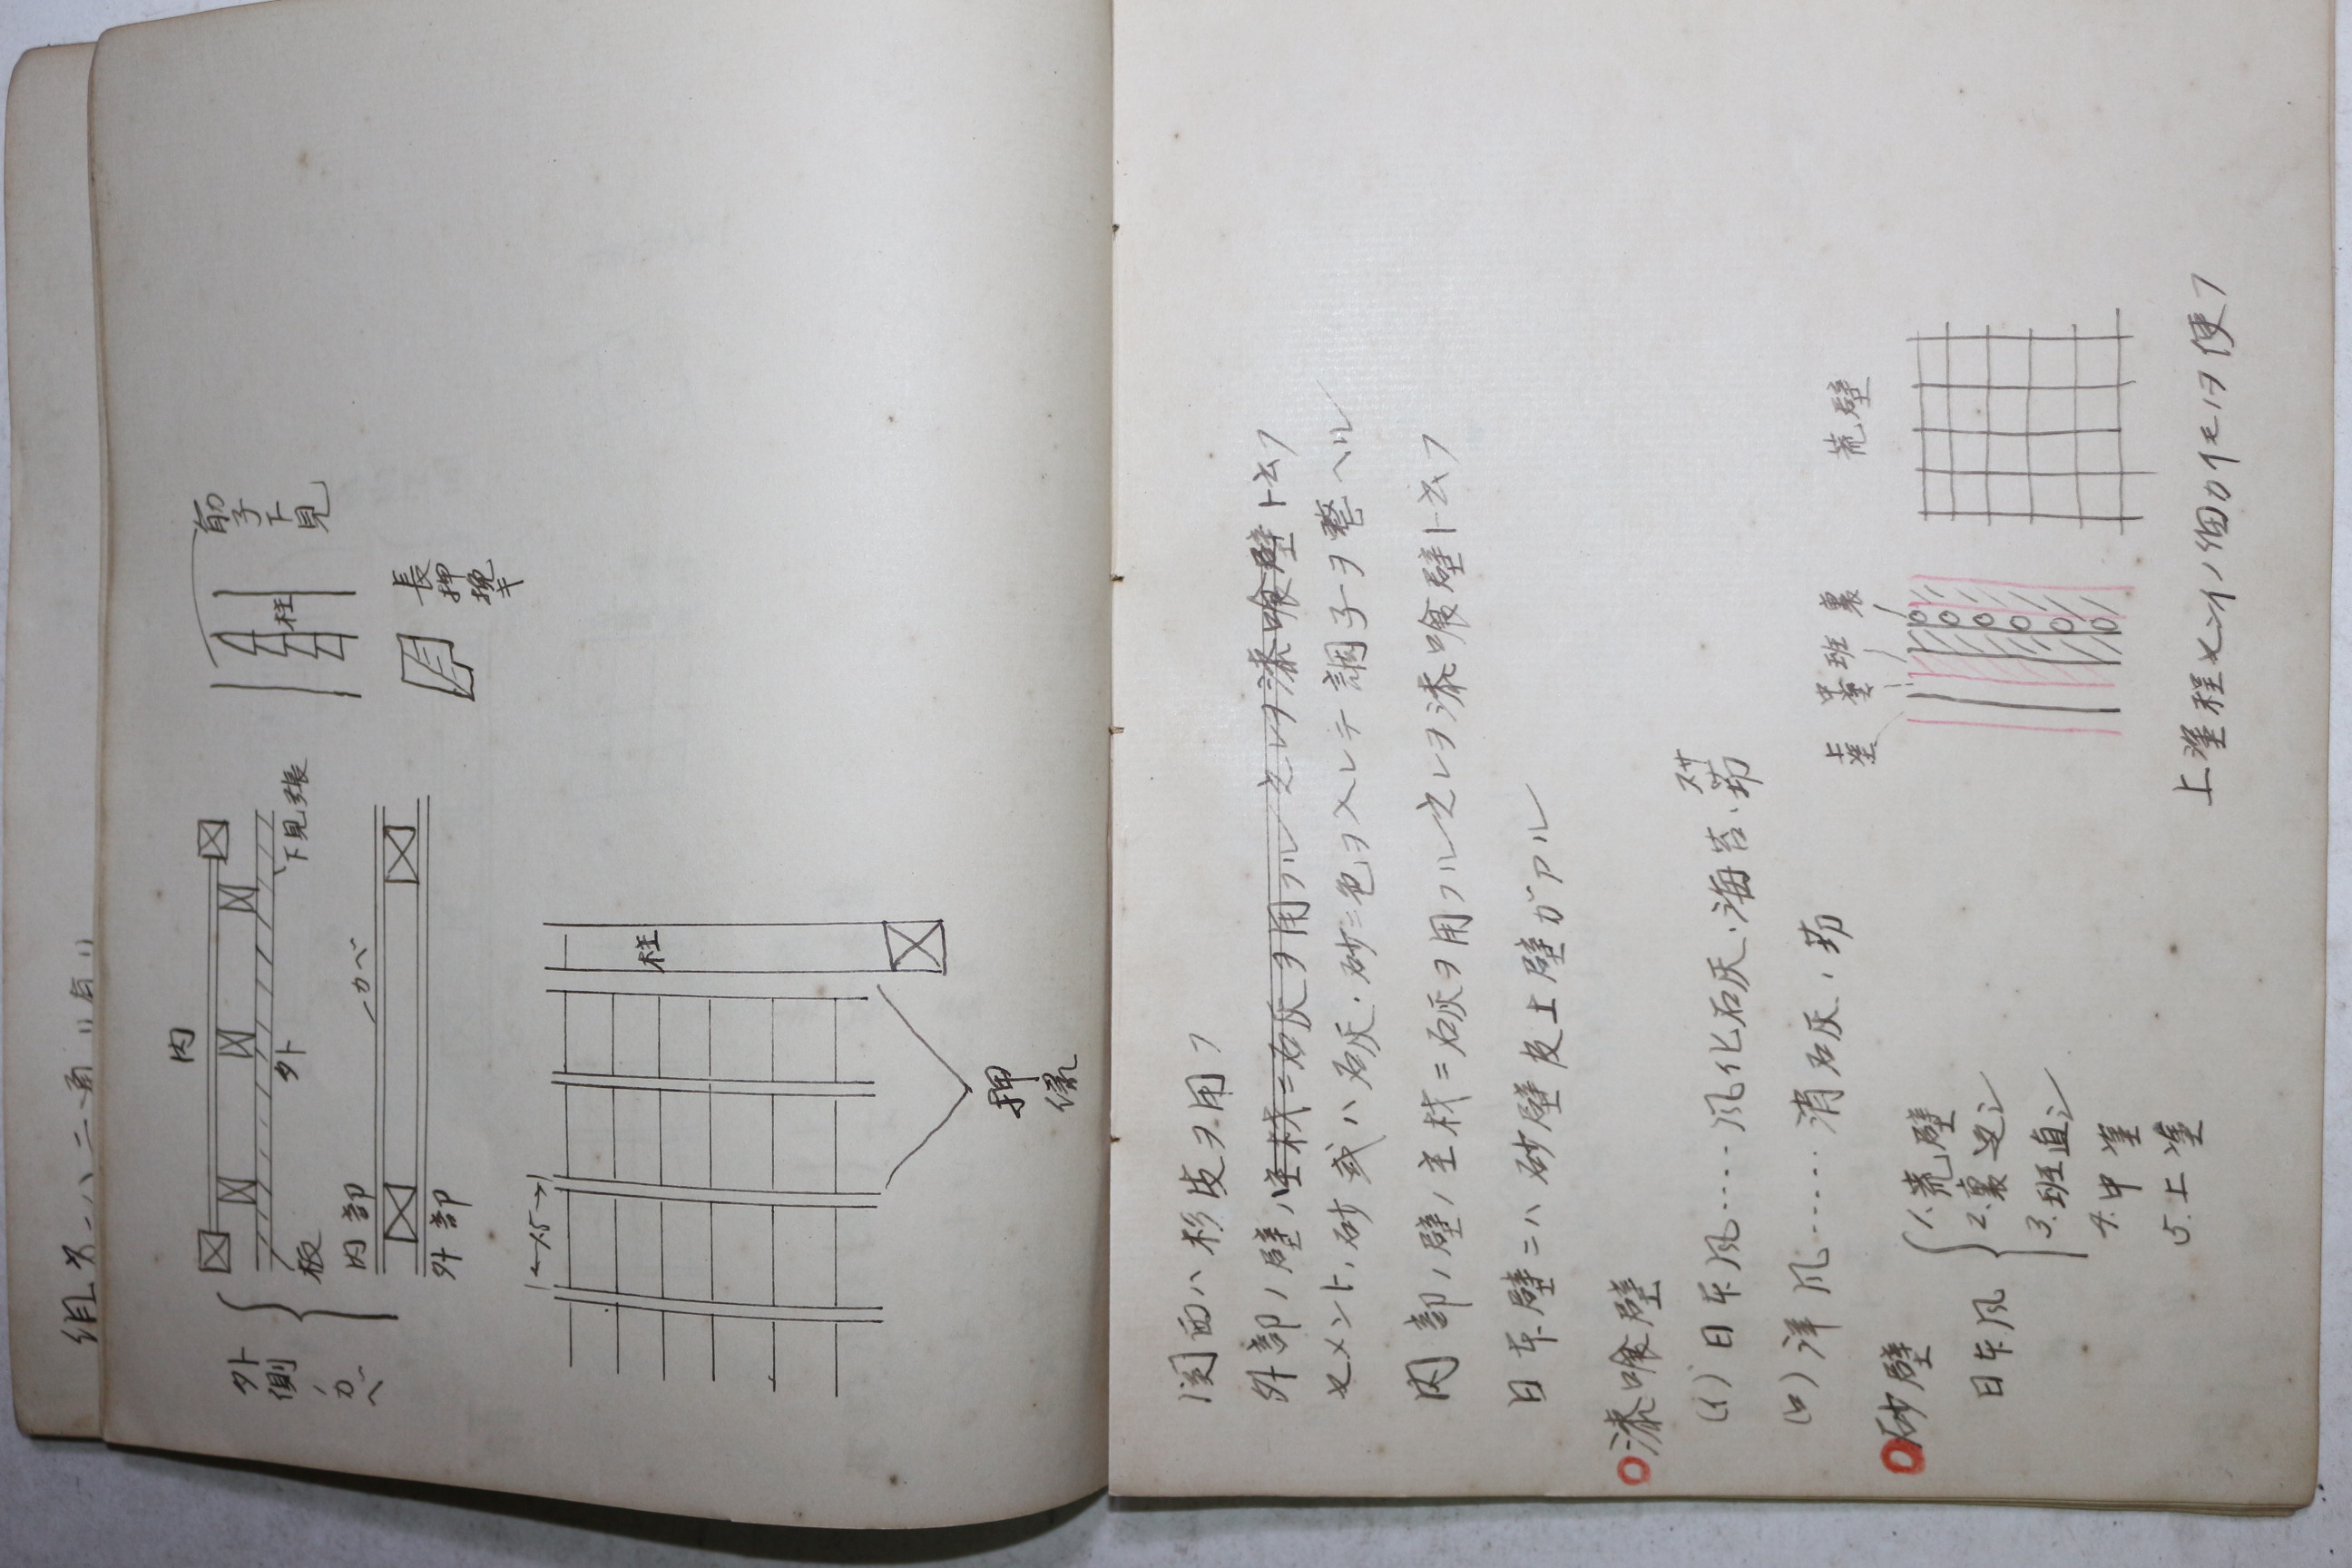 内
外
板
下見張
外側ノカベ
内部
カベ
外部
柱
筋子下見
長押挽キ
柱
1.5
押縁
図面ハ杉皮ヲ用フ
外部ノ壁ノ主材ニ石灰ヲ用フル之レヲ漆喰壁ト云フ
セメント、砂或ハ石灰・砂ニ色ヲ入レテ調子ヲ整ヘル
内部ノ壁ノ主材ニ石灰ヲ用フル之レヲ漆喰壁ト云フ
日本壁ニハ砂壁及土壁ガアル
○漆喰壁
(イ)日本風……風化石灰・海苔・苆
スサ
(ロ)洋風……消石灰、苆
○砂壁
日本風
1.荒壁
2.裏返シ
3.班直シ
4.中塗
5.上塗
上塗
中塗
班
裏
荒壁
上塗程センイノ細カイモノヲ使フ